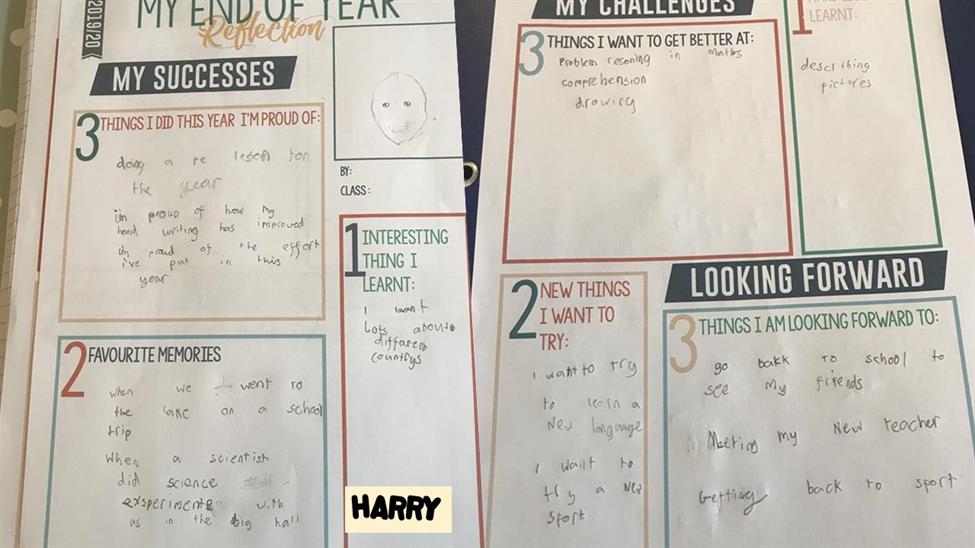 2019/20
MY END OF YEAR
Reflection
MY SUCCESSES
3 THINGS I DID THIS YEAR I'M PROUD OF:
doing a re lesson for
the year
im proud of how my
hand writing has improved
im proud of the effort
i've put in this
year
2 FAVOURITE MEMORIES
when we went to
the lake on a school
trip
when a scientist
did science
exsperiments with
us in the big hall
BY:
CLASS:
1 INTERESTING
THING I
LEARNT:
I
Lots about
different
countrys
HARRY
MY CHALLENGES
3 THINGS I WANT TO GET BETTER AT:
Problem resoning in maths
comprehension
drawing
1
LEARNT:
describing
pictures
2 NEW THINGS
I WANT TO
TRY:
I want to try
to learn a
New language
I want to
try a new
sport
LOOKING FORWARD
3 THINGS I AM LOOKING FORWARD TO:
go back to school to
see my friends
Meeting my new teacher
Getting back to sport